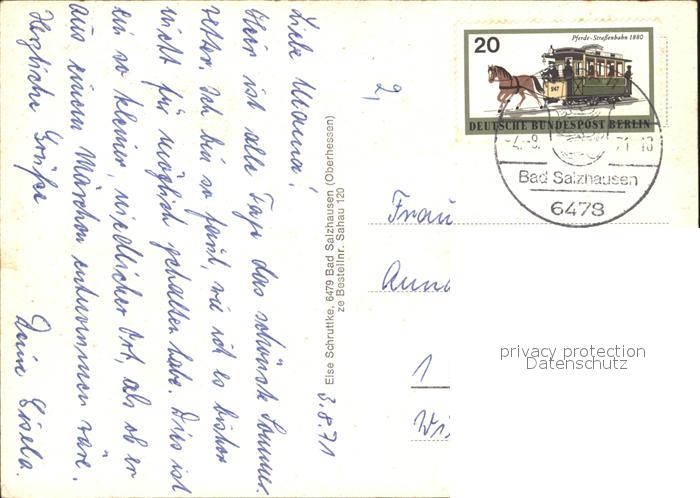 Liebe Mama!
Hier ist alle Tage das schönste Sommer
wetter. Ich bin so faul, wie ich es bisher
nicht für möglich gehalten habe. Dies ist
ein so kleiner, niedlicher Ort, als ob er
aus einem Märchen entnommen wäre.
Herzliche Grüße
Deine Gisela.
3.8.71
Else Schruttke, 6479 Bad Salzhausen (Oberhessen)
ze Bestellnr. Sahau 120
2,
20
Pferde-Straßenbahn 1880
247
DEUTSCHE BUNDESPOST BERLIN
-4.-8. 71-18
Bad Salzhausen
6478
Frau
Anna
1
Wi
privacy protection
Datenschutz